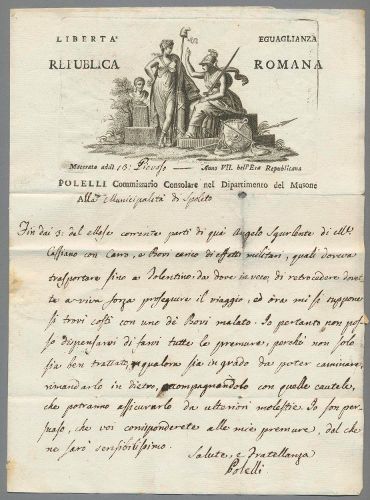 LIBERTA' EGUAGLIANZA
REPUBBLICA ROMANA
Macerata addì 13: Piovoso Anno VII. dell'Era Repubblicana
POLELLI Commissario Consolare nel Dipartimento del Musone
Alla Municipalità di Spoleto
Fin dai 3: del Mese corrente partì di quà Angelo Sgurlente di Mte
Cassiano con Carro, e Bovi carico di effetti militari, quali doveva
trasportare fino a Tolentino, da dove in vece di retrocedere dovet
te a viva forza proseguire il viaggio, ed ora mi si suppone
si trovi costì con uno de Bovi malato. Io pertanto non pos
so dispensarvi di farvi tutte le premure, perchè non solo
sia ben trattato, e qualora sia in grado da poter caminare,
rimandarlo in dietro, accompagnandolo con quelle cautele,
che potranno assicurarlo da ulteriori molestie. Io son per
suaso, che voi corrisponderete alle mie premure, del che
ne sarò sensibilissimo.
Salute, e Fratellanza
Polelli